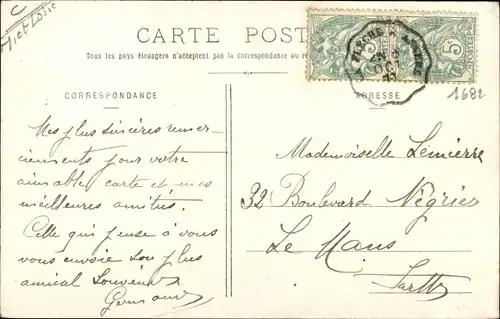 C
M. et Loire
CARTE POST
Tous les pays étrangers n'acceptent pas la correspondance au
CORRESPONDANCE
ADRESSE
1682
Mes plus sincères remer-
ciements pour votre
aimable carte et mes
meilleures amitiés.
Celle qui pense à vous
vous envoie son plus
amical souvenir
Mademoiselle Lemierre
32 Boulevard Négrier
Le Mans
Sarthe